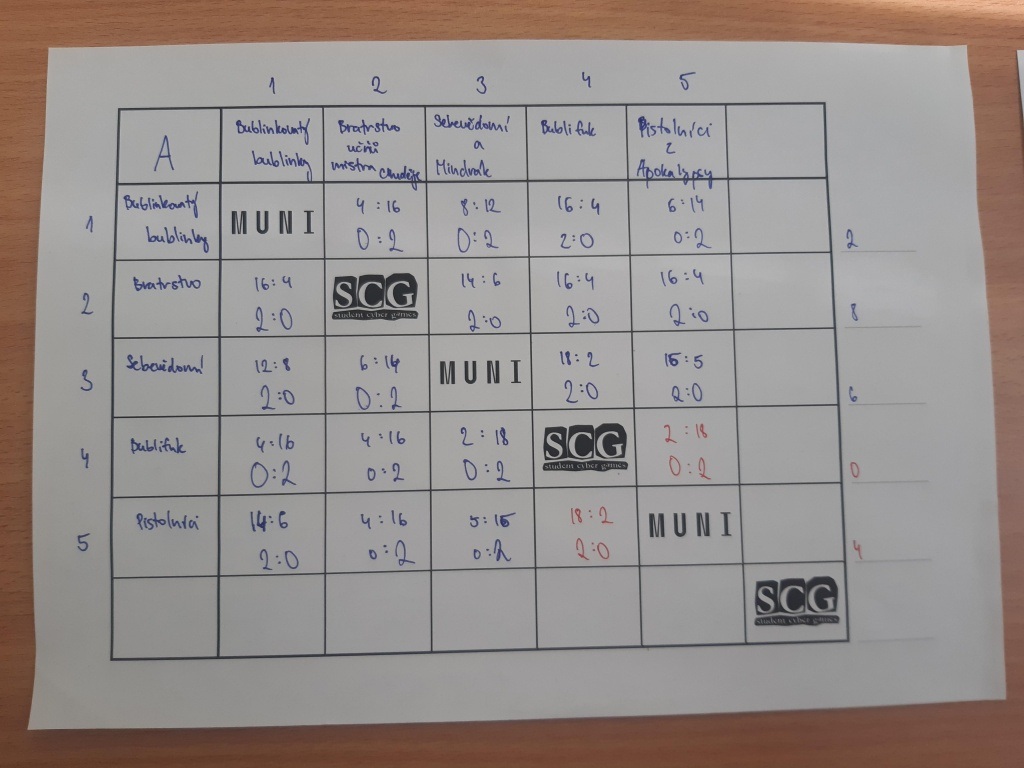 1 2 3 4 5
A Bublinkovatý bublinky Bratrstvo učňů mistra Sebevědomí a Mindrák Bublifuk Pistolníci z Apokalypsy
1 Bublinkovatý bublinky MUNI 4:16 8:12 16:4 6:14
0:2 0:2 2:0 0:2 2
2 Bratrstvo 16:4 SCG student cyber games 14:6 16:4 16:4
2:0 2:0 2:0 2:0 8
3 Sebevědomí 12:8 6:14 MUNI 18:2 15:5
2:0 0:2 2:0 2:0 6
4 Bublifuk 4:16 4:16 2:18 SCG student cyber games 2:18
0:2 0:2 0:2 0:2 0
5 Pistolníci 14:6 4:16 5:15 18:2 MUNI
2:0 0:2 0:2 2:0 4
SCG
student cyber games